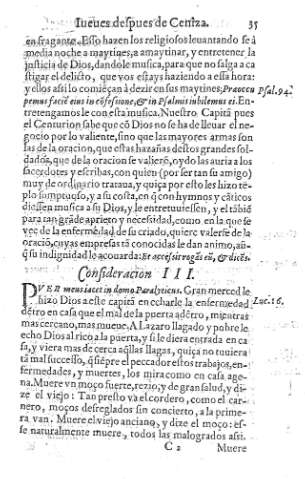 Iueues despues de Ceniza. 35
en fragante. Esso hazen los religiosos leuantando se à
media noche a maytines, a amaytinar, y entretener la
justicia de Dios, dandole musica, para que no salga a ca
stigar el delicto, que vos estays haziendo a essa hora:
y ellos assi lo comiençan à dezir en sus maytines, Præoccu Psal. 94.
pemus facië eius in cõfessione, & in Psalmis iubilemus ei. En-
tretengamosle con esta musica. Nuestro Capitã pues
el Centurion sabe que cõ Dios no se ha de lleuar el ne-
gocio por lo valiente, sino que las mayores armas son
las de la oracion, que estas hazañas destos grandes sol-
dados, que de la oracion se valierõ, oydo las auria a los
sacerdotes y escribas, con quien (por ser tan su amigo)
muy de ordinario trataua, y quiça por esto les hizo tẽ-
plo sumptuoso, y a su costa, en q̃ con hymnos y cãticos
diessen musica a su Dios, y le entretuuiessen, y el tãbiẽ
para tan grãde aprieto y necessidad, como en la que se
vee de la enfermedad de su criado, quiere valerse de la
oraciõ, cuyas empresas tã conocidas le dan animo, aũ-
q̃ su indignidad le acouarda: Et accessit rogãs eũ, & dicẽs.
Consideracion III.
PVER meus iacet in domo Paralyticus. Gran merced le
hizo Dios a este capitã en echarle la enfermedad Luc. 16.
dẽtro en casa que el mal de la puerta adẽtro, mientras
mas cercano, mas mueue. A Lazaro llagado y pobre le
echo Dios al rico a la puerta, y si le diera entrada en ca
sa, y viera mas de cerca aq̃llas llagas, quiça no tuuiera
tã mal successo, q̃ siẽpre el peccador estos trabajos, en-
fermedades, y muertes, los mira como en casa age-
na. Muere vn moço fuerte, rezio, y de gran salud, y di-
ze el viejo: Tan presto va el cordero, como el car-
nero, moços desreglados sin concierto, a la prime-
ra van. Muere el viejo anciano, y dize el moço: es-
se naturalmente muere, todos las malogrados assi.
C 2 Muere